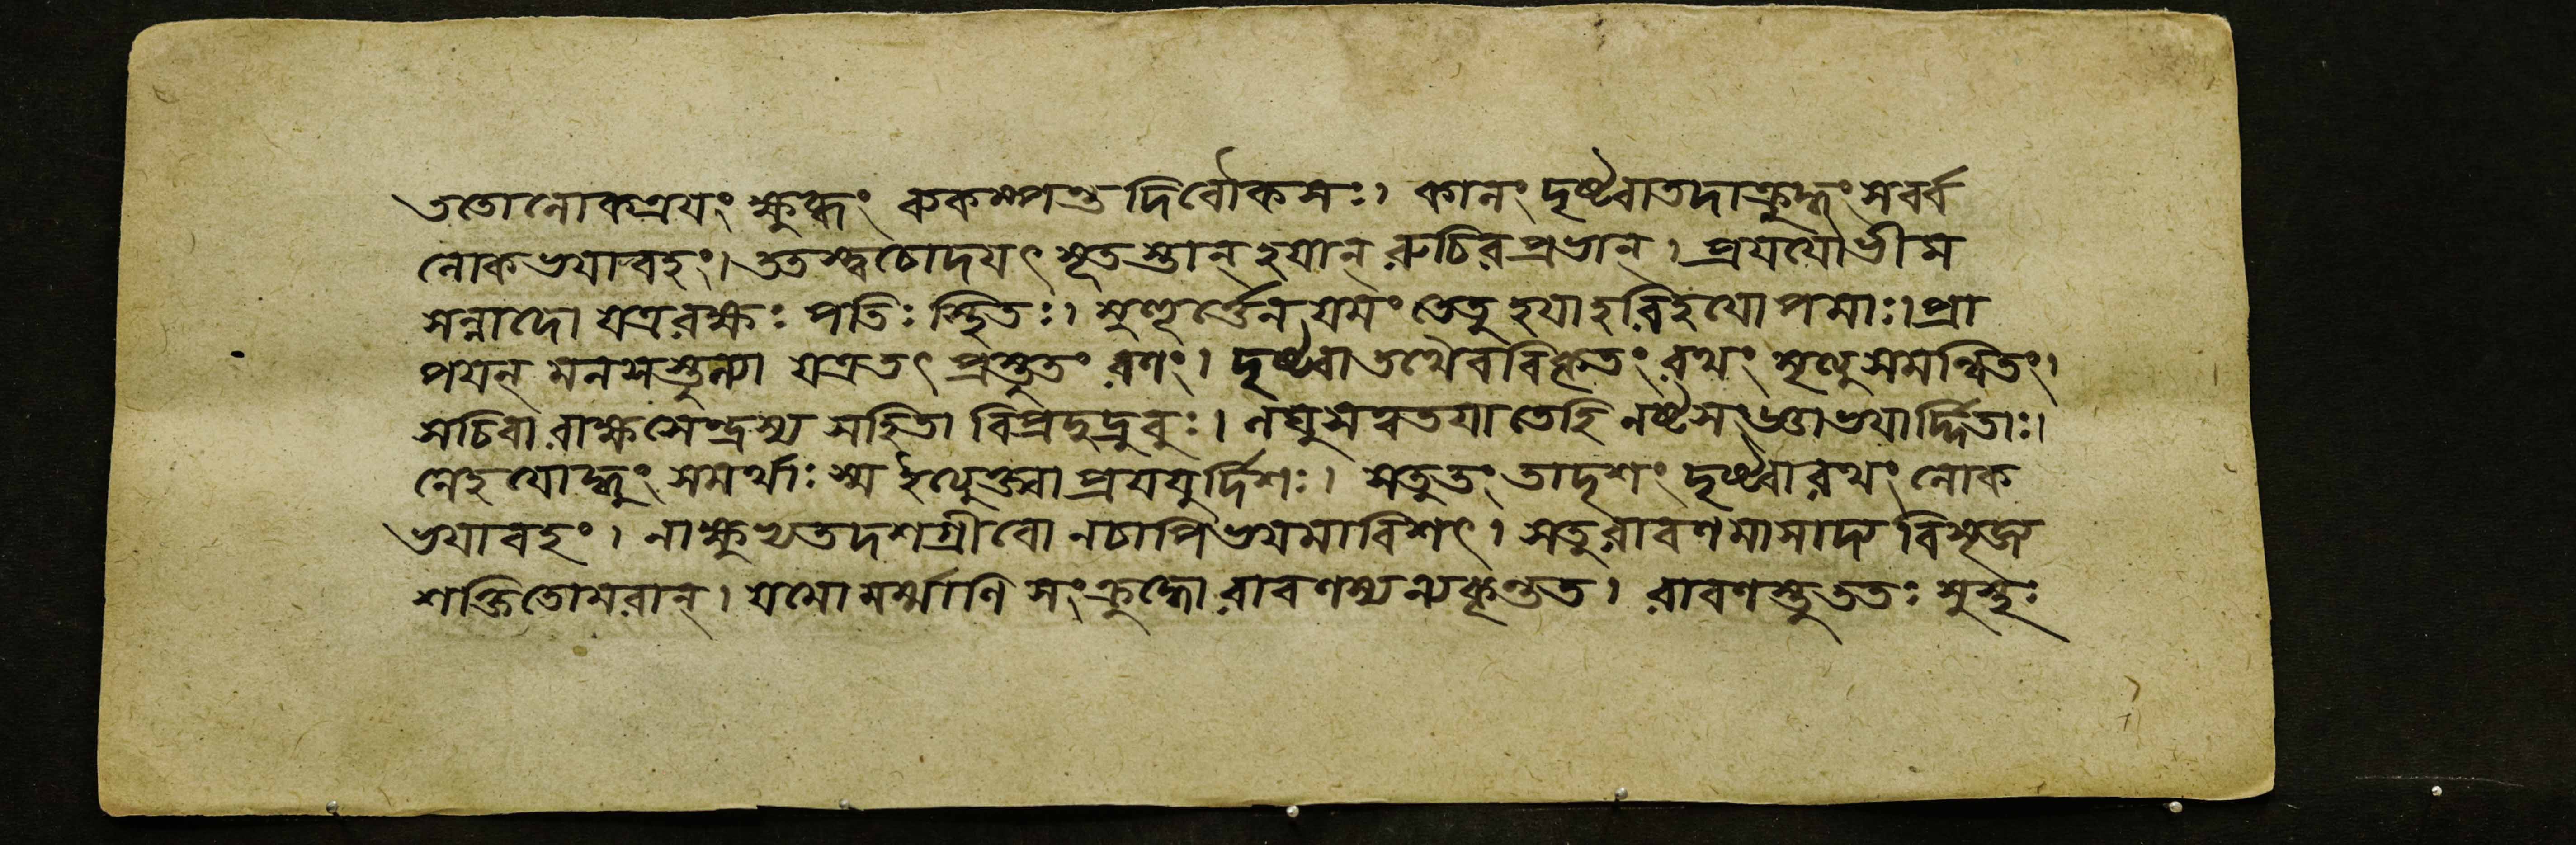 ততো লোকত্রযং ক্ষুব্ধং চকম্পশ্চ দির্বৌকসঃ। কালং দৃষ্ট্বা তদা ক্রুদ্ধং সর্ব্ব
লোকভযাবহং। ততস্ত্বচোদযৎ সূতস্তান্ হযান্ রুচিরপ্রভান্। প্রযযৌ ভীম
সন্নাদো যত্র রক্ষঃ পতিঃ স্থিতঃ। মুহূর্ত্তেন যমং তেতু হযা হরিহযোপমাঃ। প্রা
পযন্ মনসস্তুল্যা যত্র তৎ প্রস্তুতং রণং। দৃষ্ট্বা তথৈব বিকৃতং রথং মৃত্যুসমন্বিতং।
সচিবা রাক্ষসেন্দ্রস্য সহিতা বিপ্রদুদ্রুবুঃ। লঘুসত্বতযা তেহি নষ্টসংজ্ঞা ভযার্দ্দিতাঃ।
নেহ যোদ্ধুং সমর্থাঃ স্ম ইত্যুক্ত্বা প্রযযুর্দিশঃ। সতু তং তাদৃশং দৃষ্ট্বা রথং লোক
ভযাবহং। নাক্ষুভ্যত দশগ্রীবো নচাপি ভযমাবিশৎ। সতু রাবণমাসাদ্য বিসৃজ্য
শক্তিতোমরান্। যমো মর্ম্মাণি সংক্রুদ্ধো রাবণস্য ন্যকৃন্তত। রাবণস্তু ততঃ সুস্থঃ